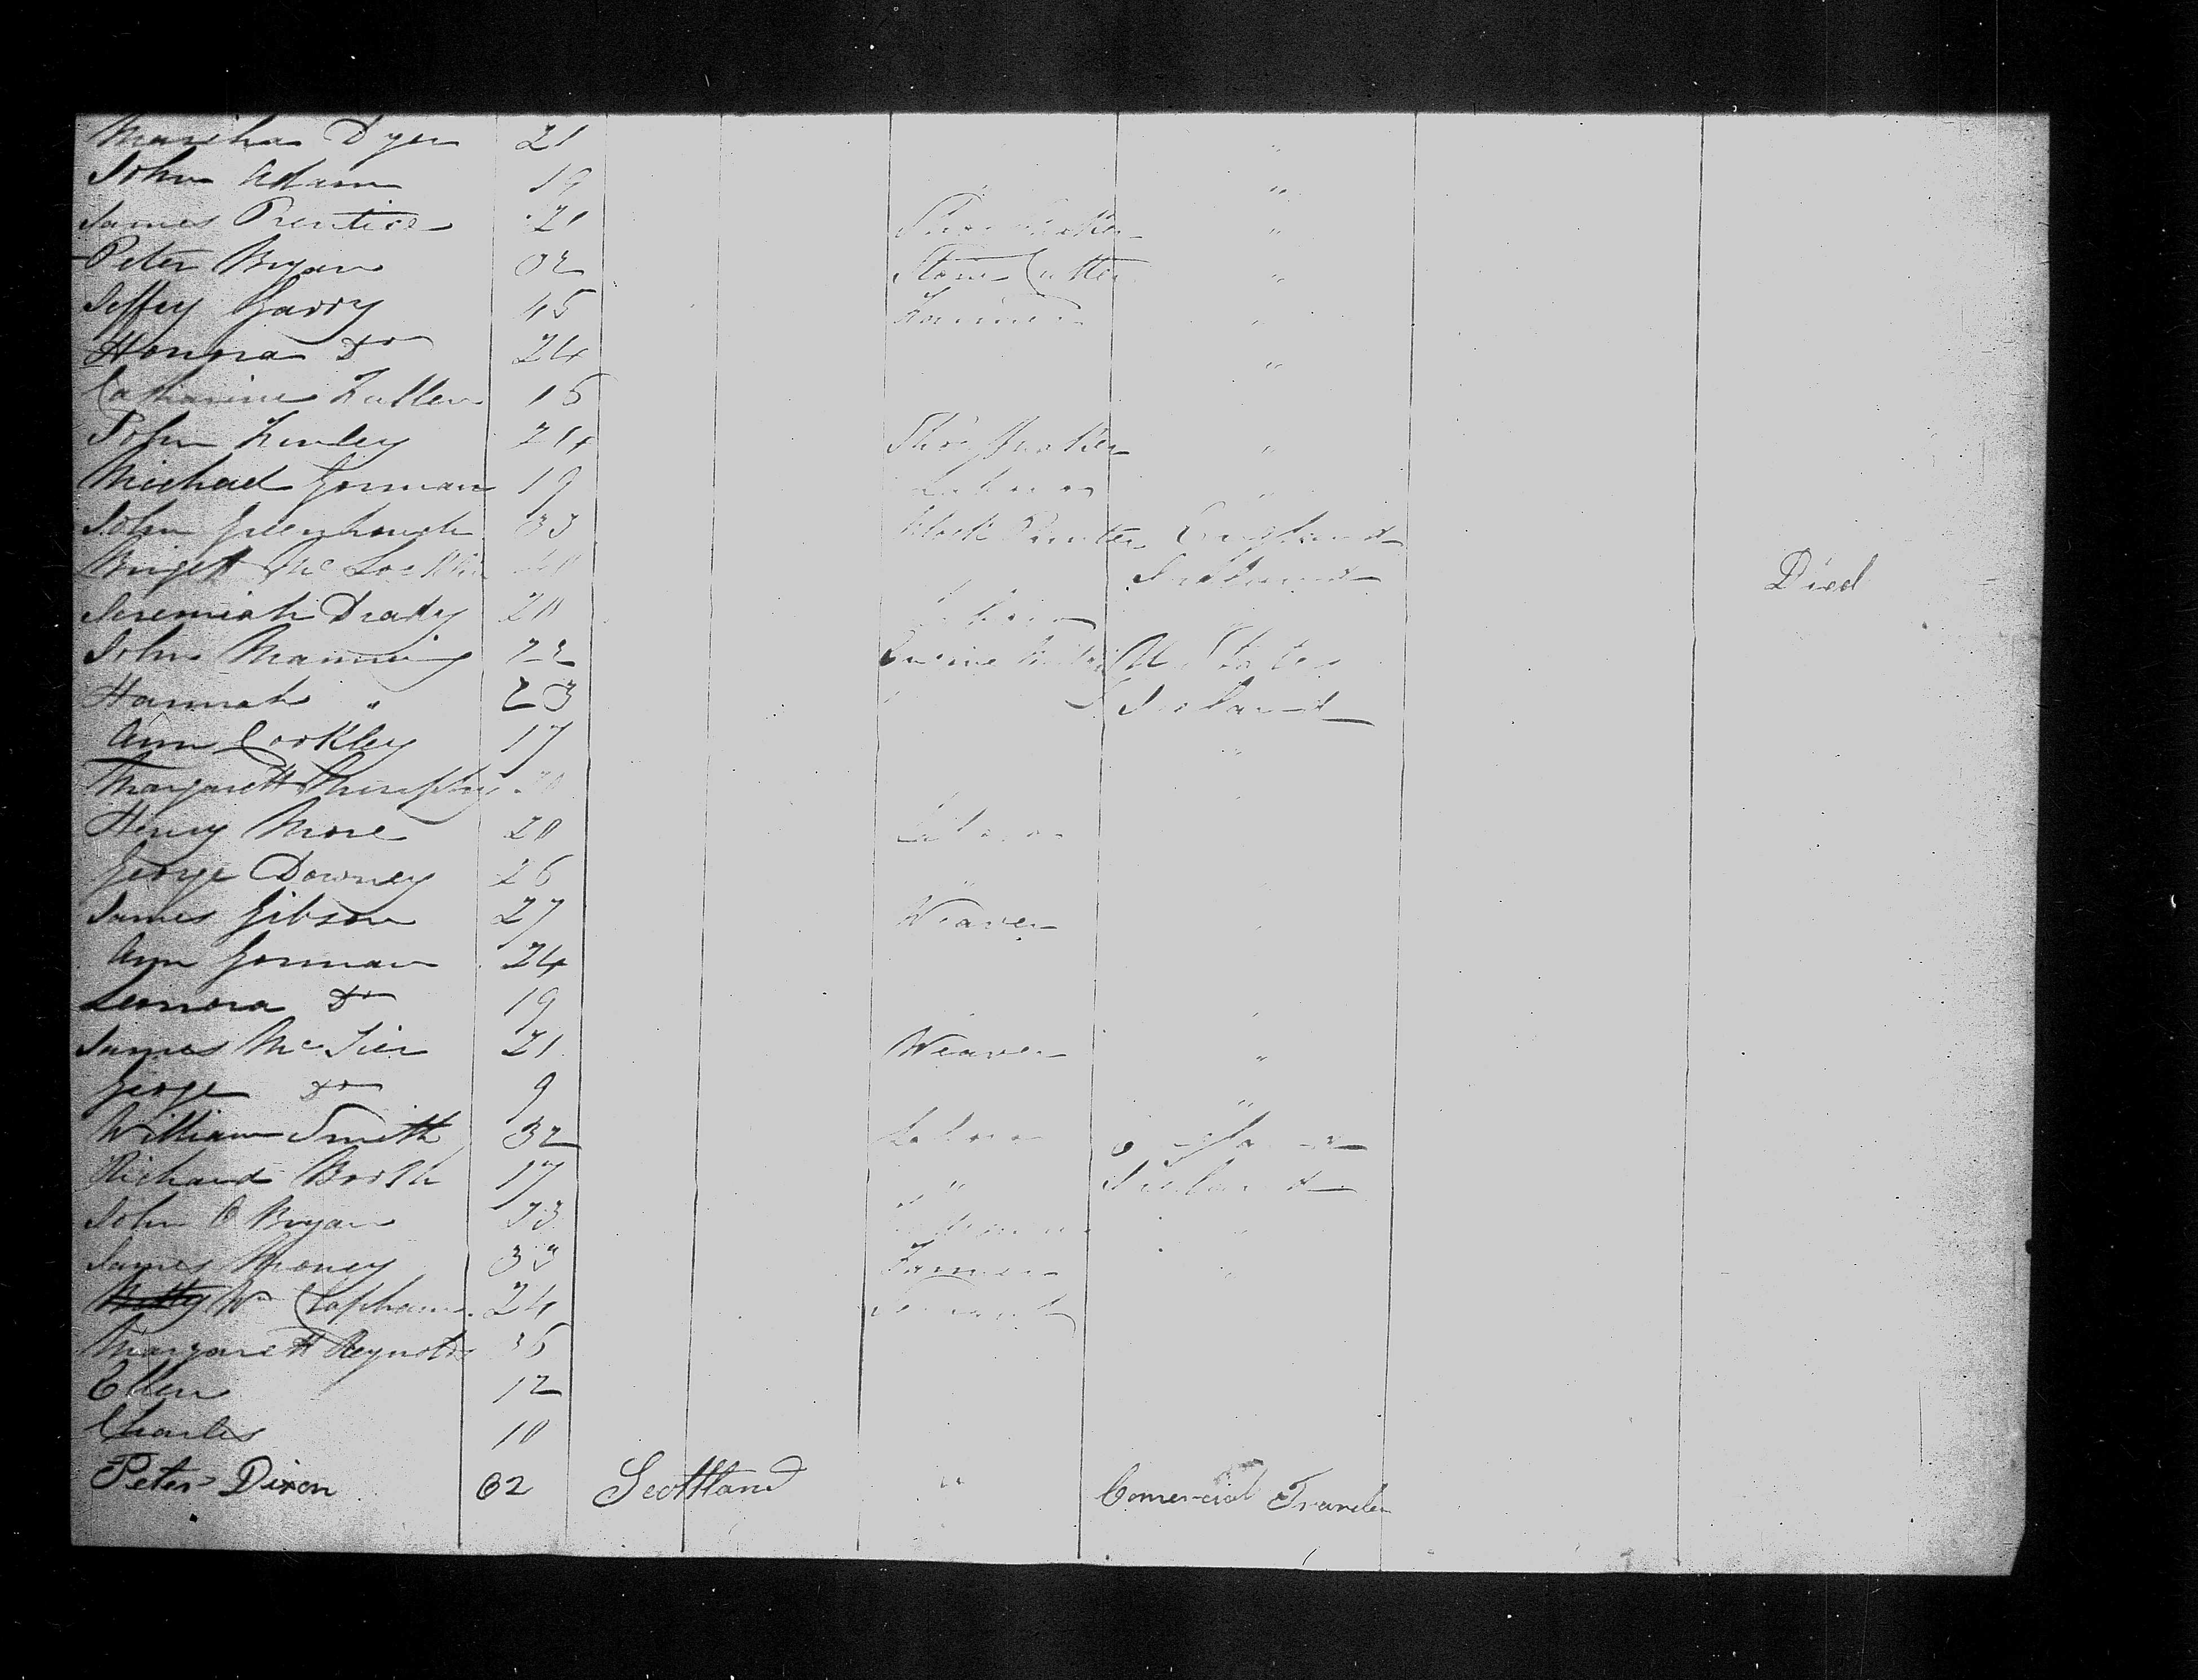 Martha Dyer 21 "
John Adam 19 "
James Prentice 21 "
Peter Bryan 32 Stone Cutter "
Jeffey Garry 45 Farmer "
Honora Do 24 "
Catharine 16
John Kinley 24 Shoe Maker "
Michael Gorman 19 Labourer "
John Greenhough 33 Block Printer England
Briget Mc Ireland Died
Jeremiah Drady 20
John Manning 22 U States
Hannah " 23 Ireland
Ann Corkley 17 "
Margarett Murphy 20
Henry More 20
George Downey 26 "
James Gibson 27 Weaver
Ann Gorman 24
Leonora Do 19
James McTier 21 Weaver "
George Do 9 "
William Smith 32 England
Richard Booth 17 " Ireland
John O Bryan
James Mooney Farmer
Wm Clapham 24 Servant
Margarett Reynolds 36
Ellen 12
Charles 10
Peter Dixon 62 Scottland " Comercial Traveler